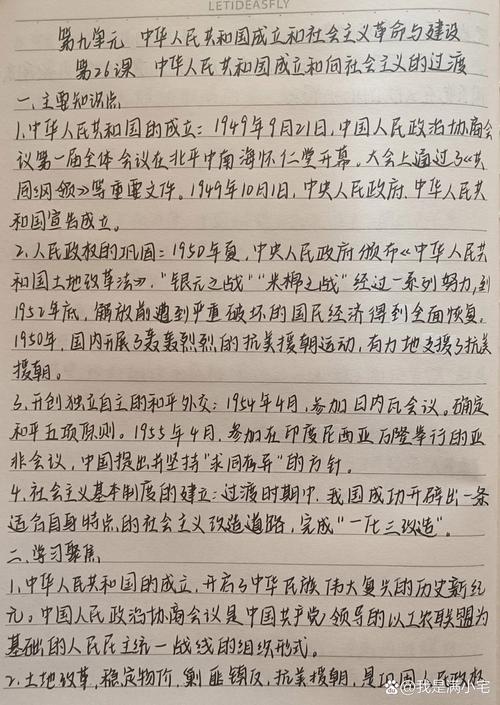 LETIDEASFLY
第九单元 中华人民共和国成立和社会主义革命与建设
第26课 中华人民共和国成立和向社会主义的过渡
一.主要知识点
1.中华人民共和国的成立：1949年9月21日，中国人民政治协商会
议第一届全体会议在北平中南海怀仁堂开幕。大会上通过了《共
同纲领》等重要文件。1949年10月1日，中央人民政府、中华人民共
和国宣告成立。
2.人民政权的巩固：1950年夏，中央人民政府颁布《中华人民共
和国土地改革法》。"银元之战""米棉之战"经过一系列努力，到
1952年底，解放前遭到严重破坏的国民经济得到全面恢复。
1950年，国内开展了轰轰烈烈的抗美援朝运动，有力地支援了抗美
援朝。
3.开创独立自主的和平外交：1954年4月，参加日内瓦会议。确定
和平五项原则。1955年4月，参加在印度尼西亚万隆举行的亚
非会议，中国提出并坚持"求同存异"的方针。
4.社会主义基本制度的建立：过渡时期中，我国成功开辟出一条
适合自身特点的社会主义改造道路，完成"一化三改造"。
二.学习聚焦
1.中华人民共和国的成立，开启了中华民族伟大复兴的历史新纪
元。中国人民政治协商会议是中国共产党领导的以工农联盟为
基础的人民民主统一战线的组织形式。
2.土地改革，稳定物价，剿匪镇反，抗美援朝，是巩固人民政权
@我是满小宅